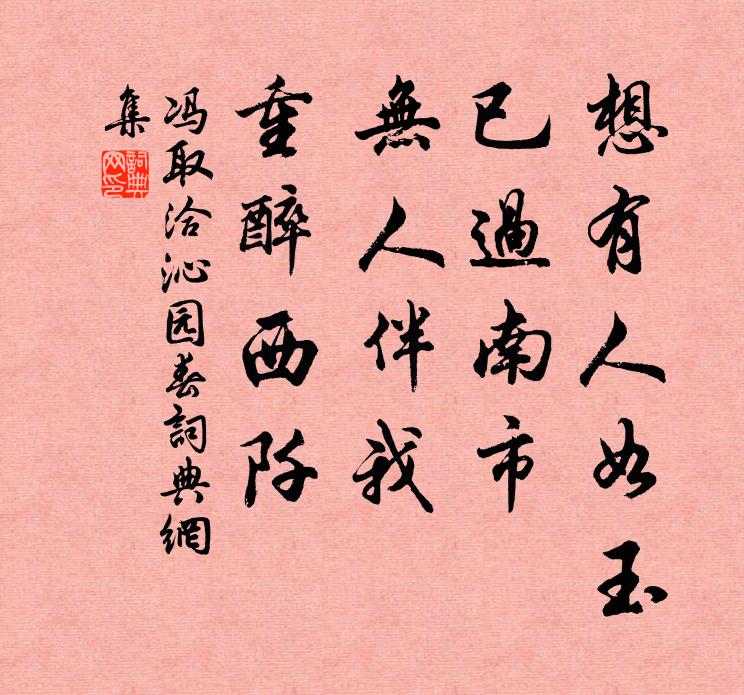 想有人如玉
已過南市
無人伴我
重醉西阡
冯取洽沁园春詞典網
集
詞典网印